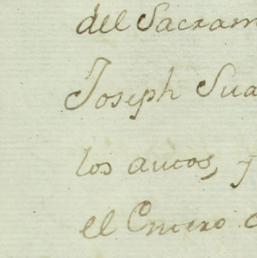 del Sacram
Joseph Sua
los autos, y
el Enero